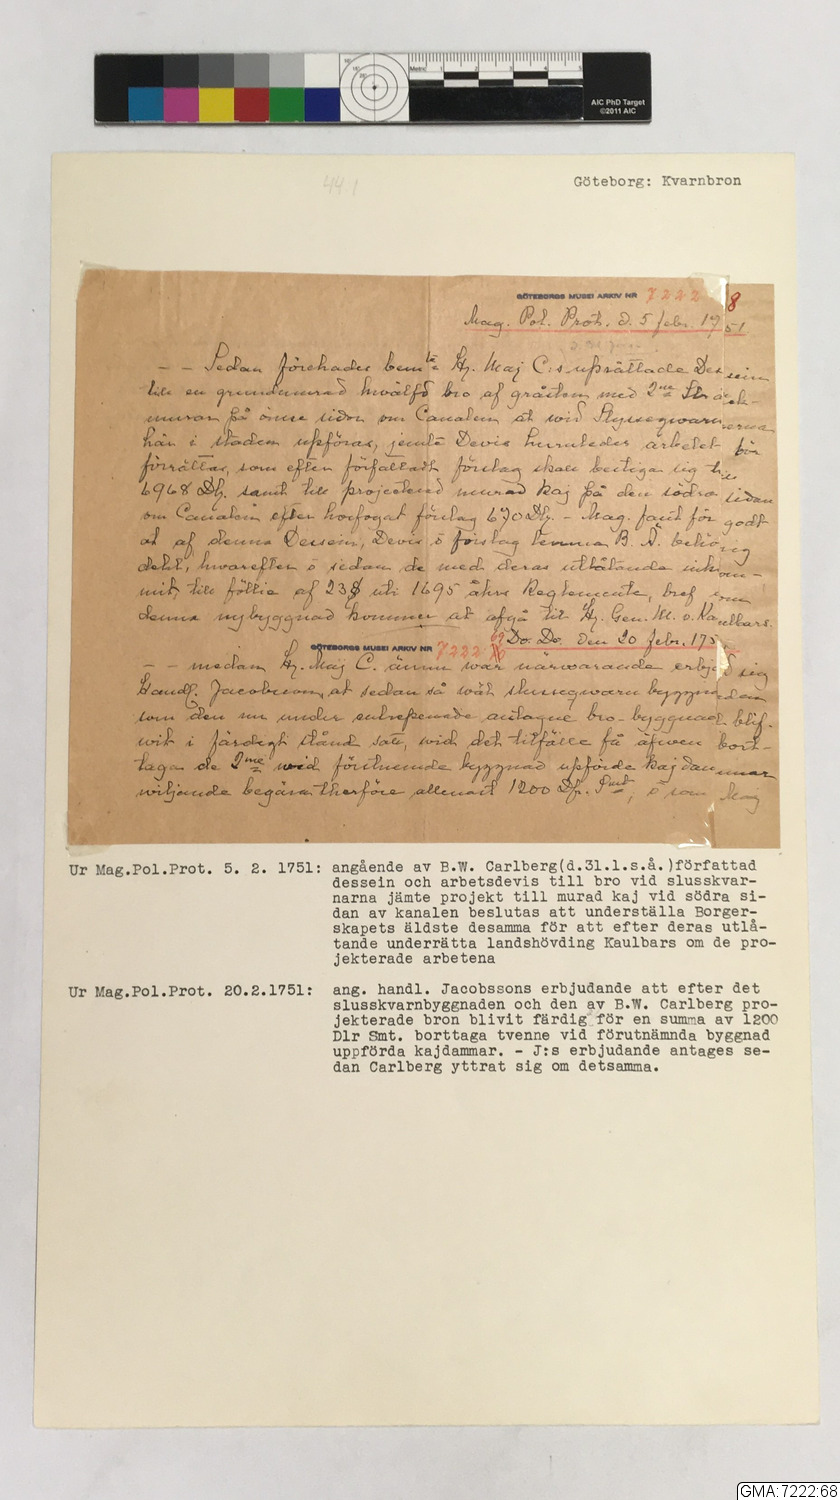 Metric 1 2 3 4 5
AIC PhD Target
©2011 AIC
441
Göteborg: Kvarnbron
GÖTEBORGS MUSEI ARKIV NR 7222 8
Mag. Pol. Prot. d. 5 febr. 1751.
- - Sedan förehades bemte Hr. Maj C:s uprättade Dessein
till en grundmurad hwälfd bro af gråsten med 2ne Sträck-
murar på ömse sidor om Canalen at wid Slyssqwarnerna
här i staden upföras, jemte Devis huruledes arbetet bör
förrättas, som efter författadt förslag skall bestiga sig till
6968 Dlr. samt till projecterad murad kaj på den södra sidan
om Canalen efter förslag 670 Dlr. - Mag. fant för godt
at af denna Dessein, Devis o förslag B. Ä. behörig
delt, hwarefter o sedan de med deras utlåtande inkom-
mit, till följe af 23 § uti 1695 åhrs Reglemente, bref om
denna nybyggnad kommer at afgå till Hr. Gen. M. v. Kaulbars.
GÖTEBORGS MUSEI ARKIV NR 7222 69 Do. Do. den 20 febr. 175
- - medan Hr. Maj C. ännu war närwarande erbjöd sig
Handl. Jacobsson, at sedan så wäl slussqwarn byggnaden
som den nu under entrepenade antagne bro-byggnad blif-
wit i färdigt stånd satt, wid det tilfälle få äfwen bort-
taga de 2ne wid förstnemde byggnad upförde kajdammar
wiljande begära therföre allenast 1200 Dlr. Smt, o som Maj
Ur Mag.Pol.Prot. 5. 2. 1751: angående av B.W. Carlberg(d.31.1.s.å.)författad
dessein och arbetsdevis till bro vid slusskvar-
narna jämte projekt till murad kaj vid södra si-
dan av kanalen beslutas att underställa Borger-
skapets äldste desamma för att efter deras utlå-
tande underrätta landshövding Kaulbars om de pro-
jekterade arbetena
Ur Mag.Pol.Prot. 20.2.1751: ang. handl. Jacobssons erbjudande att efter det
slusskvarnbyggnaden och den av B.W. Carlberg pro-
jekterade bron blivit färdig för en summa av 1200
Dlr Smt. borttaga tvenne vid förutnämnda byggnad
uppförda kajdammar. - J:s erbjudande antages se-
dan Carlberg yttrat sig om detsamma.
GMA:7222:68